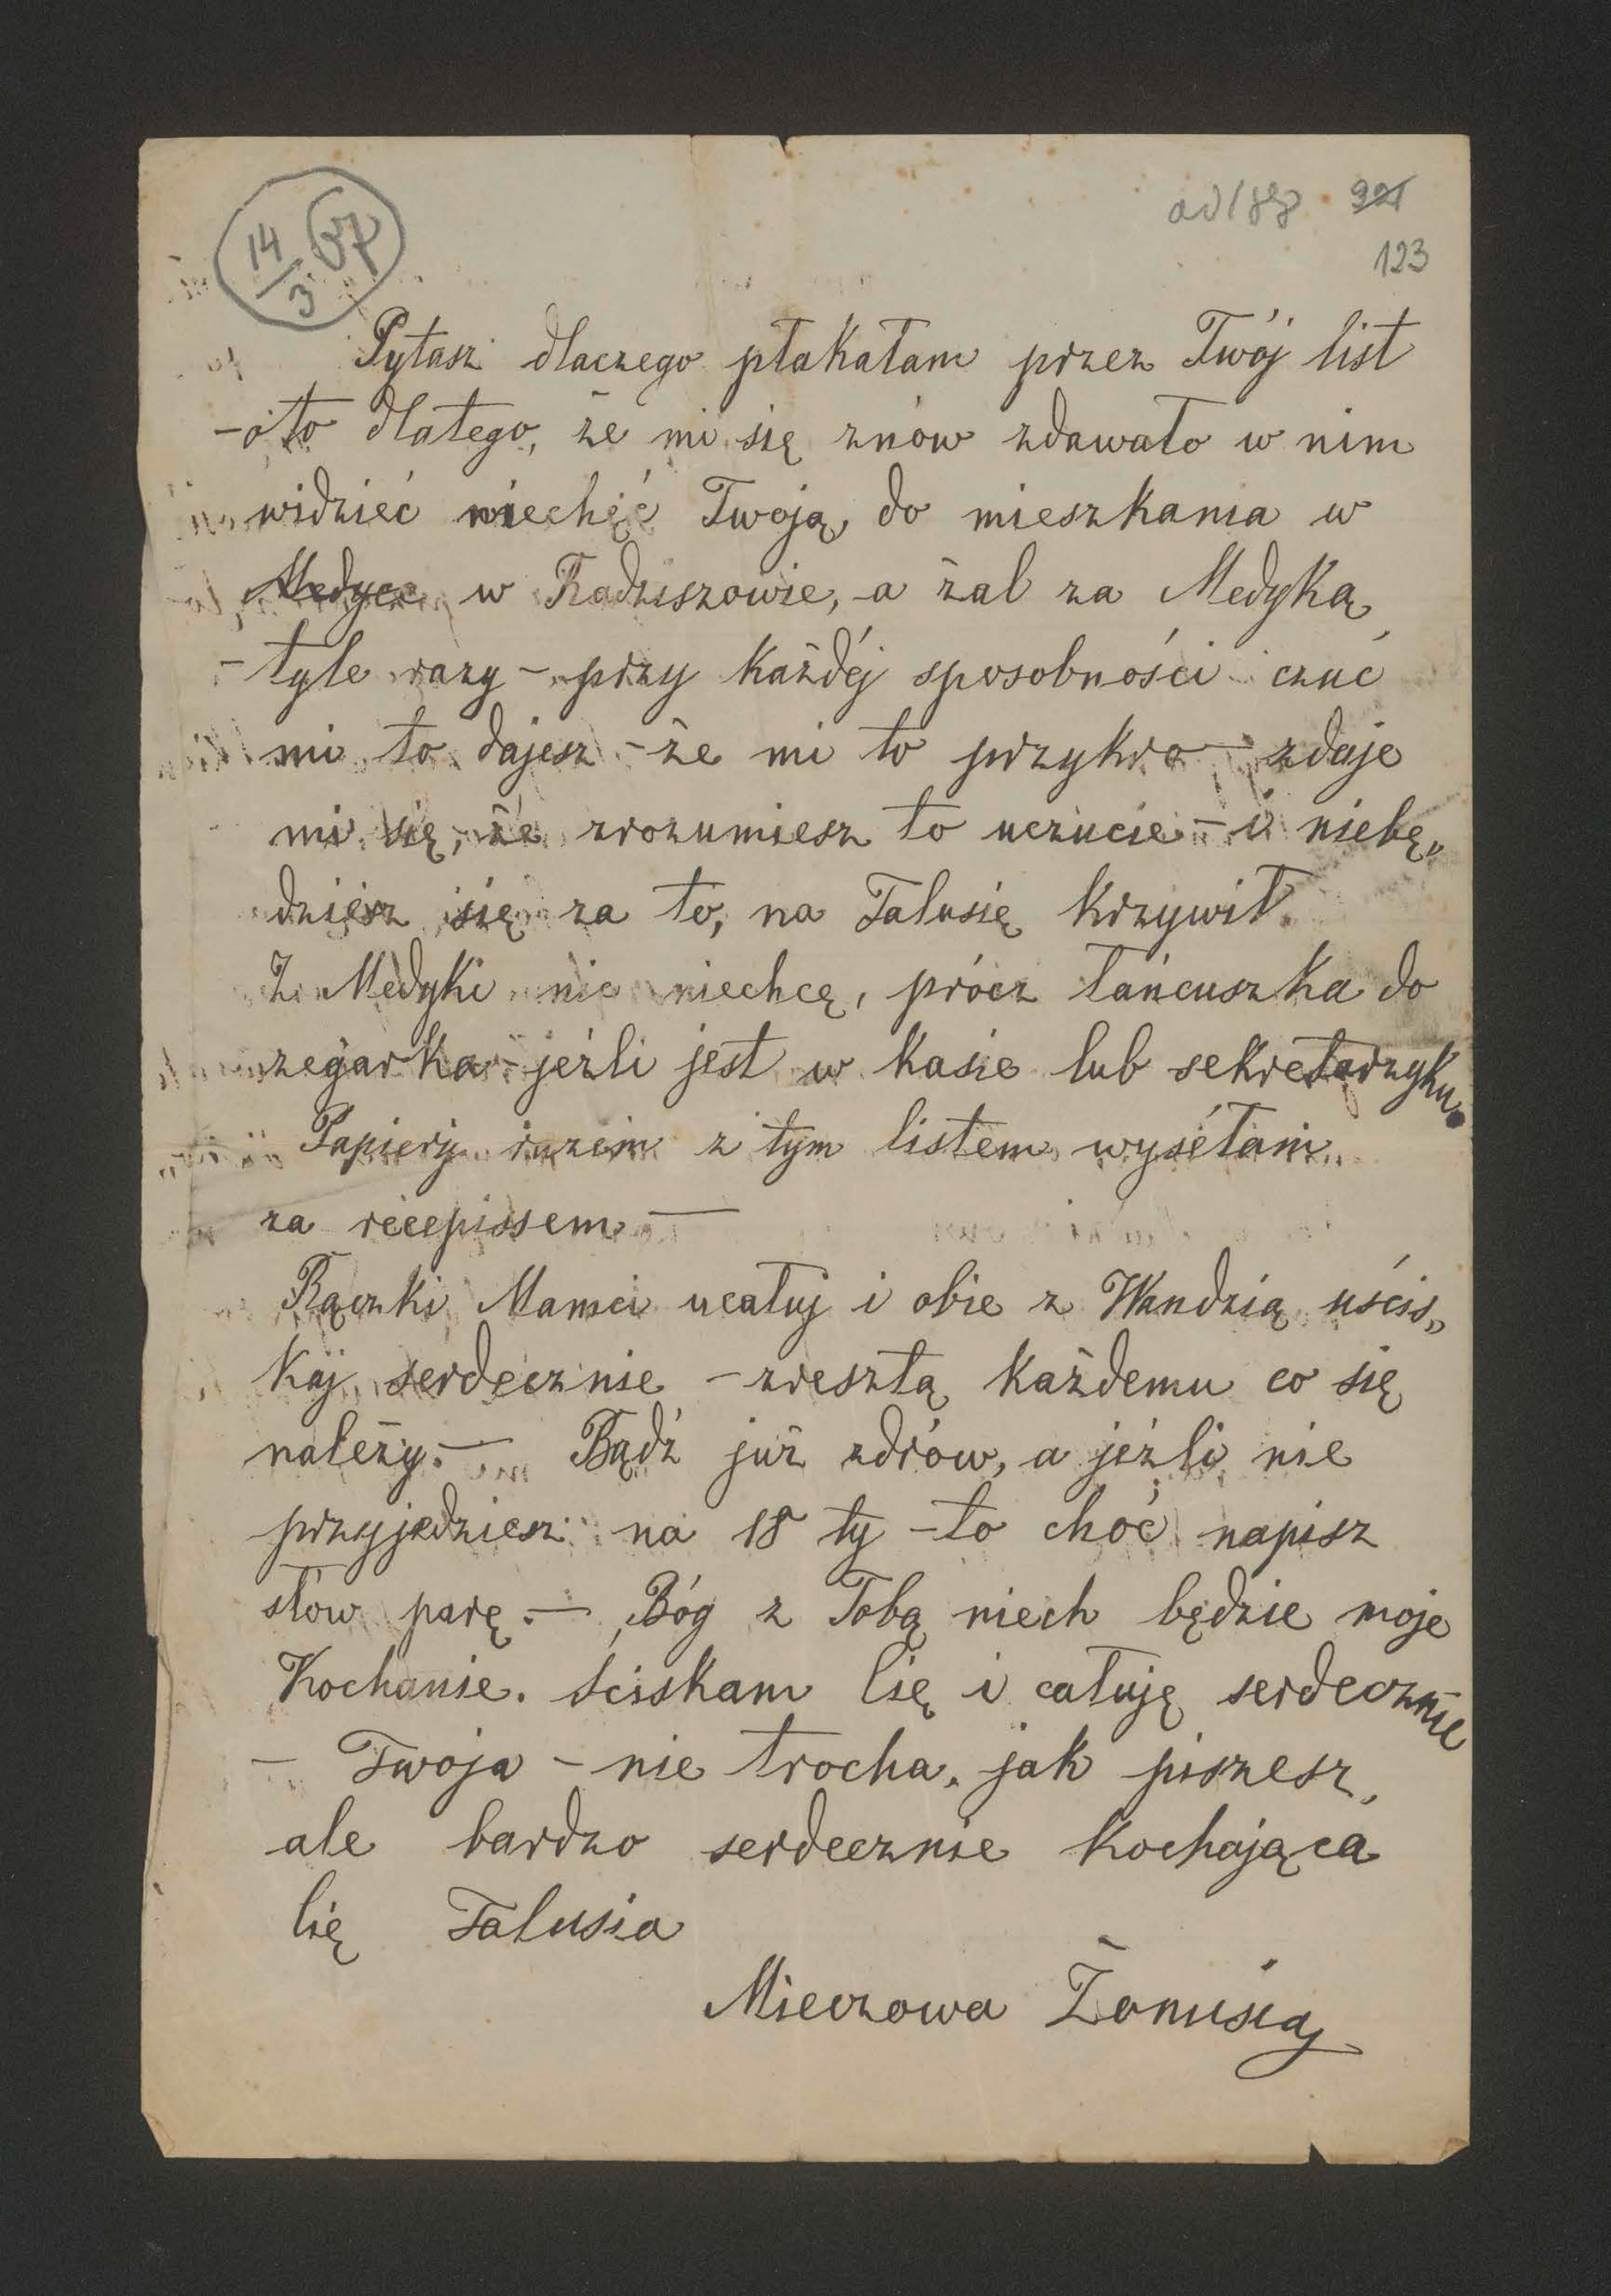 14/3 87
ad 188 921
123
Pytasz dlaczego płakałam przez Twój list
- oto dlatego, że mi się znów zdawało w nim
widzieć niechęć Twoją do mieszkania w
Medyce w Radziszowie, a żal za Medyką,
- tyle razy - przy każdéj sposobności czuć
mi to dajesz - że mi to przykro - zdaje
mi się, że zrozumiesz to uczucie - i niebę„
dziesz się za to, na Talusię krzywił.
Z Medyki nic niechcę, prócz łańcuszka do
zegarka - jeźli jest w kasie lub sekretarzyku.
Papiery razem z tym listem wysełam
za recepissem —
Rączki Mamci ucałuj i obie z Wandzią uścis„
kaj serdecznie - zresztą każdemu co się
należy. — Bądź już zdrów, a jeźli nie
przyjedziesz na 18 ty - to choć napisz
słów parę. — Bóg z Tobą niech będzie moje
Kochanie. Ściskam Cię i całuję serdecznie
- Twoja - nie trocha, jak piszesz,
ale bardzo serdecznie kochająca
Cię Talusia
Mieczowa Żonusia